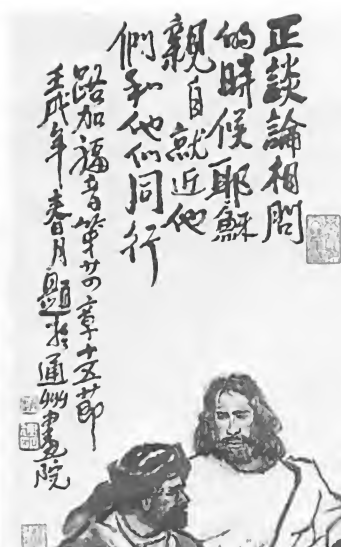 正談論相問
的時候耶穌
親自就近他
們和他們同行
路加福音第廿四章十五節
壬戌年春月題於通州書畫院